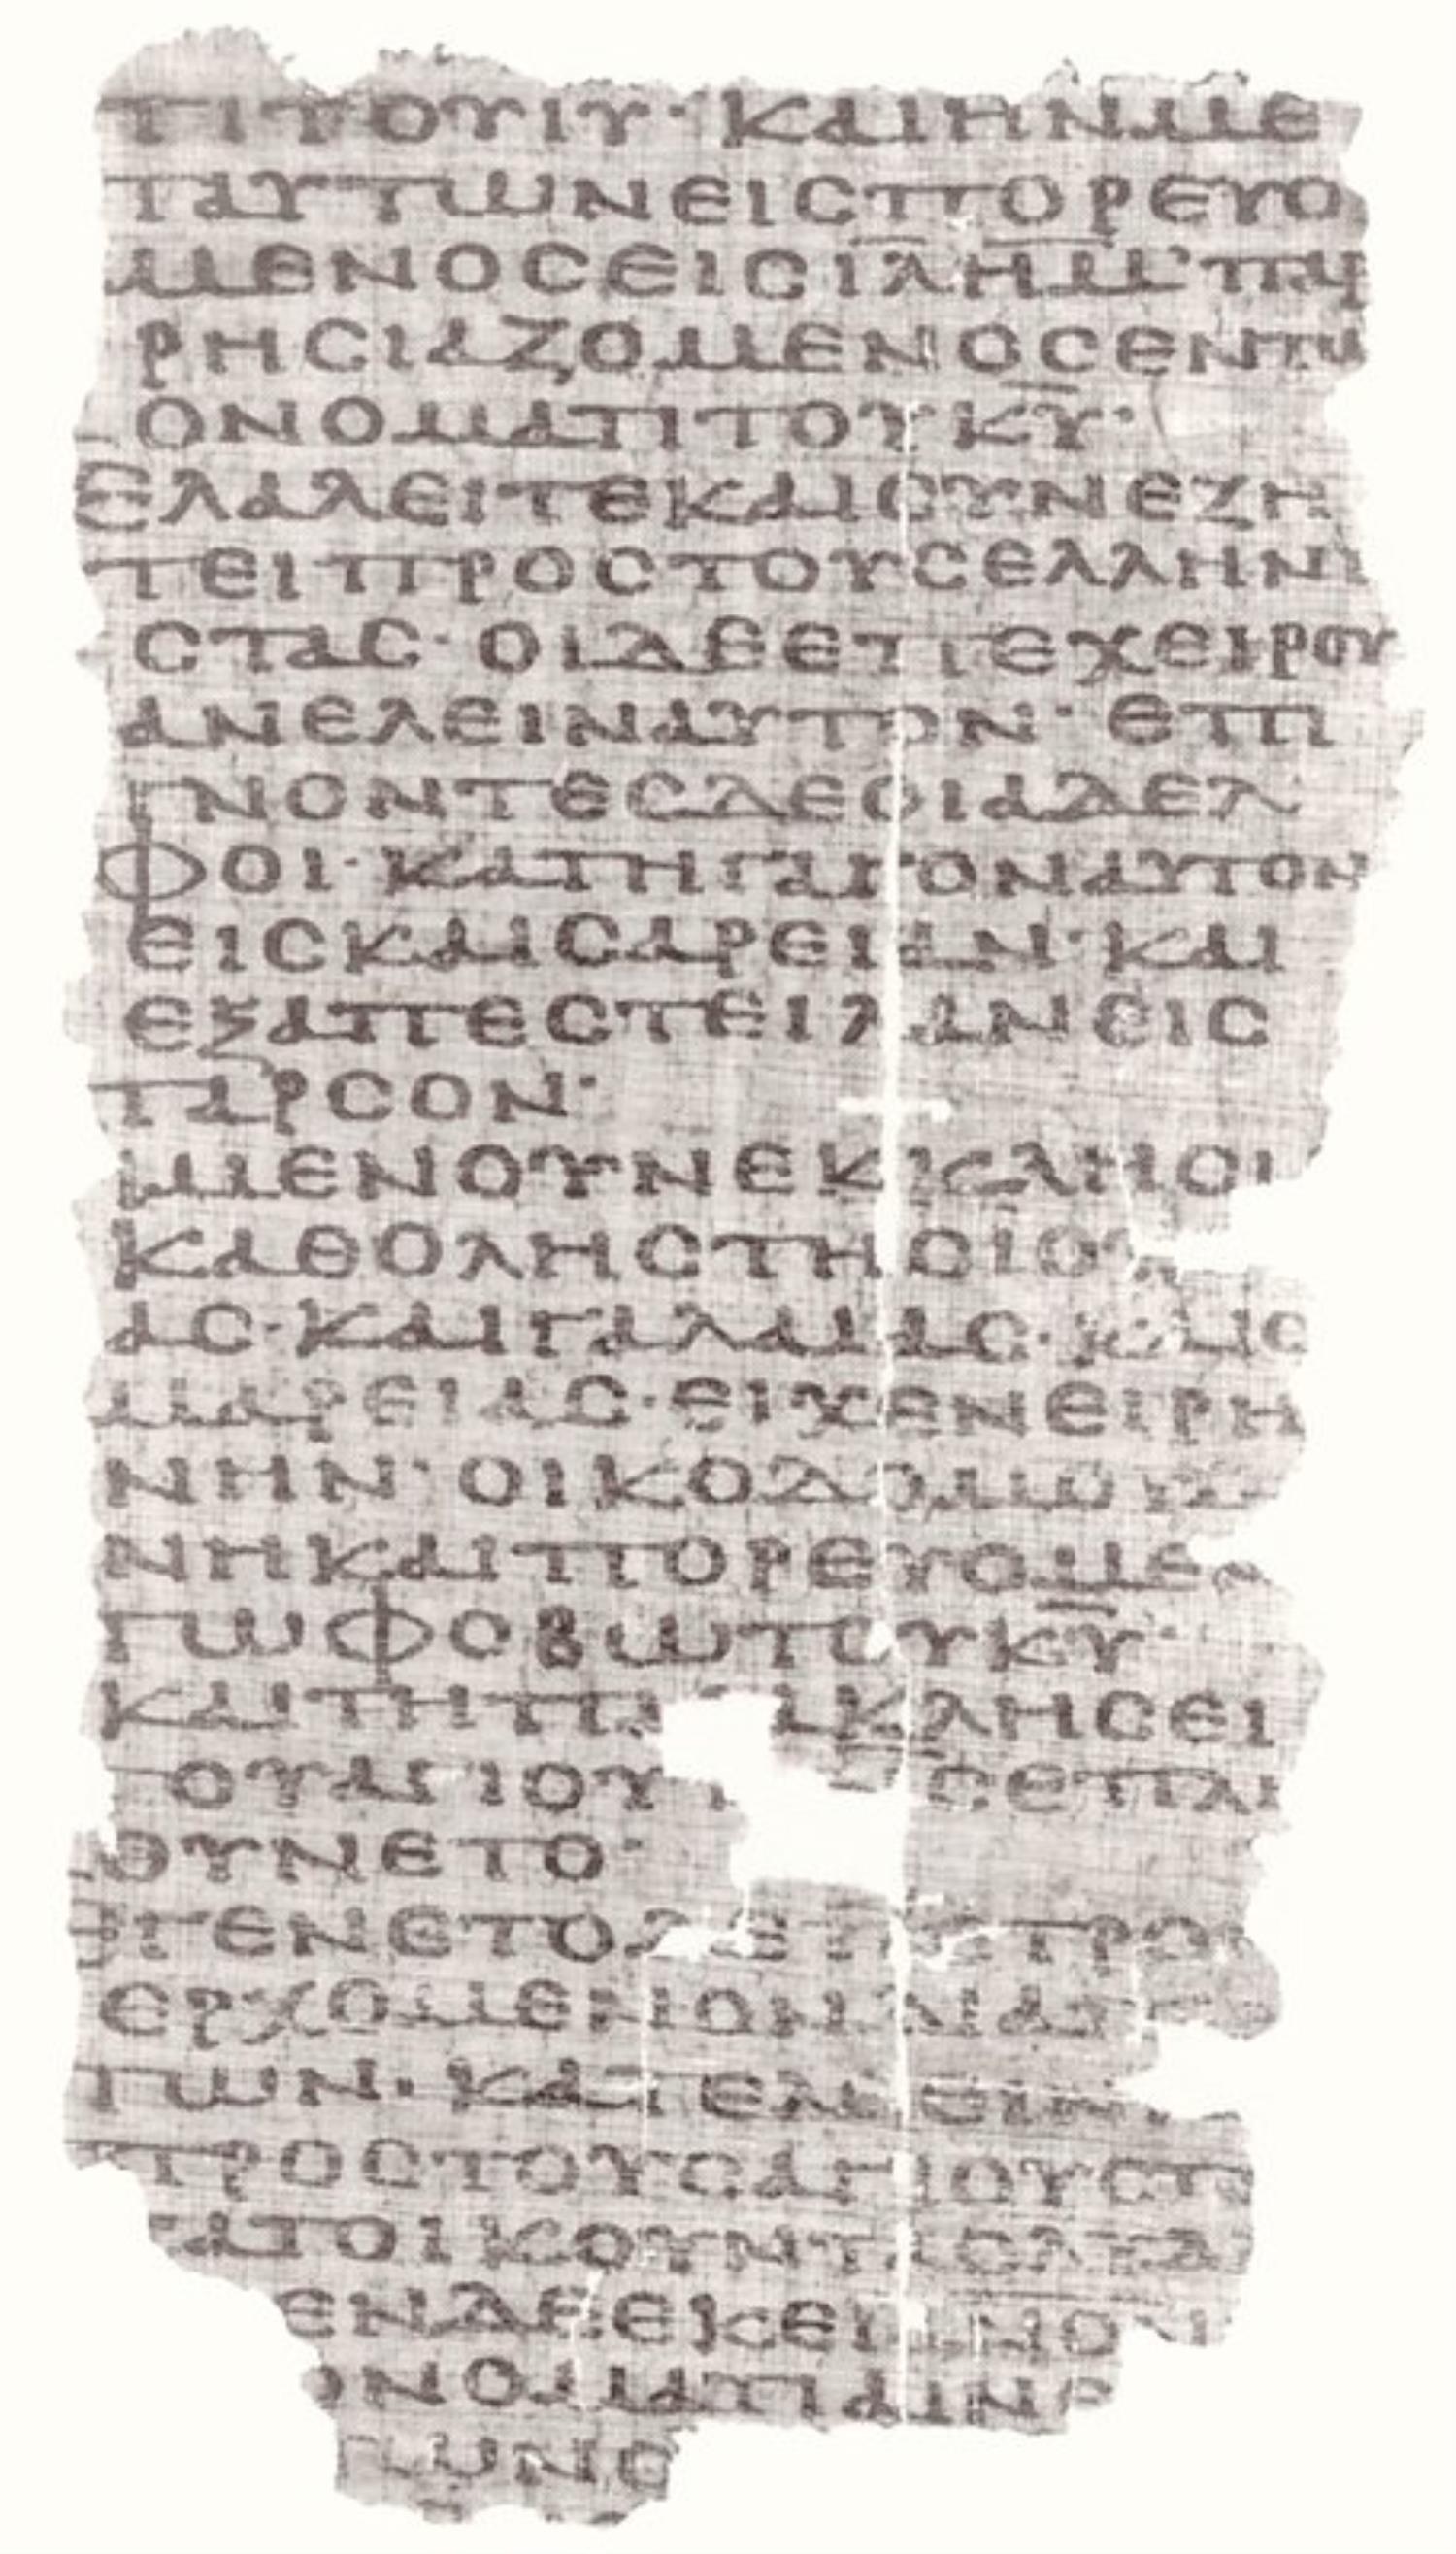 ΤΙΤΟΥΙΥ· ΚΑΙΗΝΜΕ
ΤΑΥΤΩΝΕΙCΠΟΡΕΥΟ
ΜΕΝΟCΕΙCΙ̅Λ̅Η̅Μ̅’ΠΑΡ
ΡΗCΙΑΖΟΜΕΝΟCΕΝΤΩ
ΟΝΟΜΑΤΙΤΟΥΚ̅Υ̅·
ΕΛΑΛΕΙΤΕΚΑΙCΥΝΕΖΗ
ΤΕΙΠΡΟCΤΟΥCΕΛΛΗΝΙ
CΤΑC· ΟΙΔΕΕΠΕΧΕΙΡΟΥ
ΑΝΕΛΕΙΝΑΥΤΟΝ· ΕΠΙ
ΓΝΟΝΤΕCΔΕΟΙΑΔΕΛ
ΦΟΙ· ΚΑΤΗΓΑΓΟΝΑΥΤΟΝ
ΕΙCΚΑΙCΑΡΕΙΑΝ·ΚΑΙ
ΕΞΑΠΕCΤΕΙΛΑΝΕΙC
ΤΑΡCΟΝ·
ΜΕΝΟΥΝΕΚΚΛΗCΙ
ΚΑΘΟΛΗCΤΗCΙΟΥ
ΑC·ΚΑΙΓΑΛΑΙΑC·ΚΑΙC
ΜΑΡΕΙΑC·ΕΙΧΕΝΕΙΡΗ
ΝΗΝ· ΟΙΚΟΔΟΜΟΥΜΕ
ΝΗΚΑΙΠΟΡΕΥΟΜΕ
ΤΩΦΟΒΩΤΟΥΚ̅Υ̅·
ΚΑΙΤΗΠΑ ΑΚΛΗCΕΙ
ΟΥΑΓΙΟΥ CΕΠΛΗ
ΘΥΝΕΤΟ·
ΕΓΕΝΕΤΟΔΕΠΕΤΡΟ
ΕΡΧΟΜΕΝΟΝΔΙΑΠ
ΤΩΝ·ΚΑΤΕΛΘΕΙΝ
ΠΡΟCΤΟΥCΑΓΙΟΥCΤΟ
ΚΑΤΟΙΚΟΥΝΤΑCΛΥΔΔ
ΕΝΔΕΕΚΕΙ ΑΝΘ
ΟΝΟΜΑΤΙΑΙΝΕ
ΤΩΝΟ